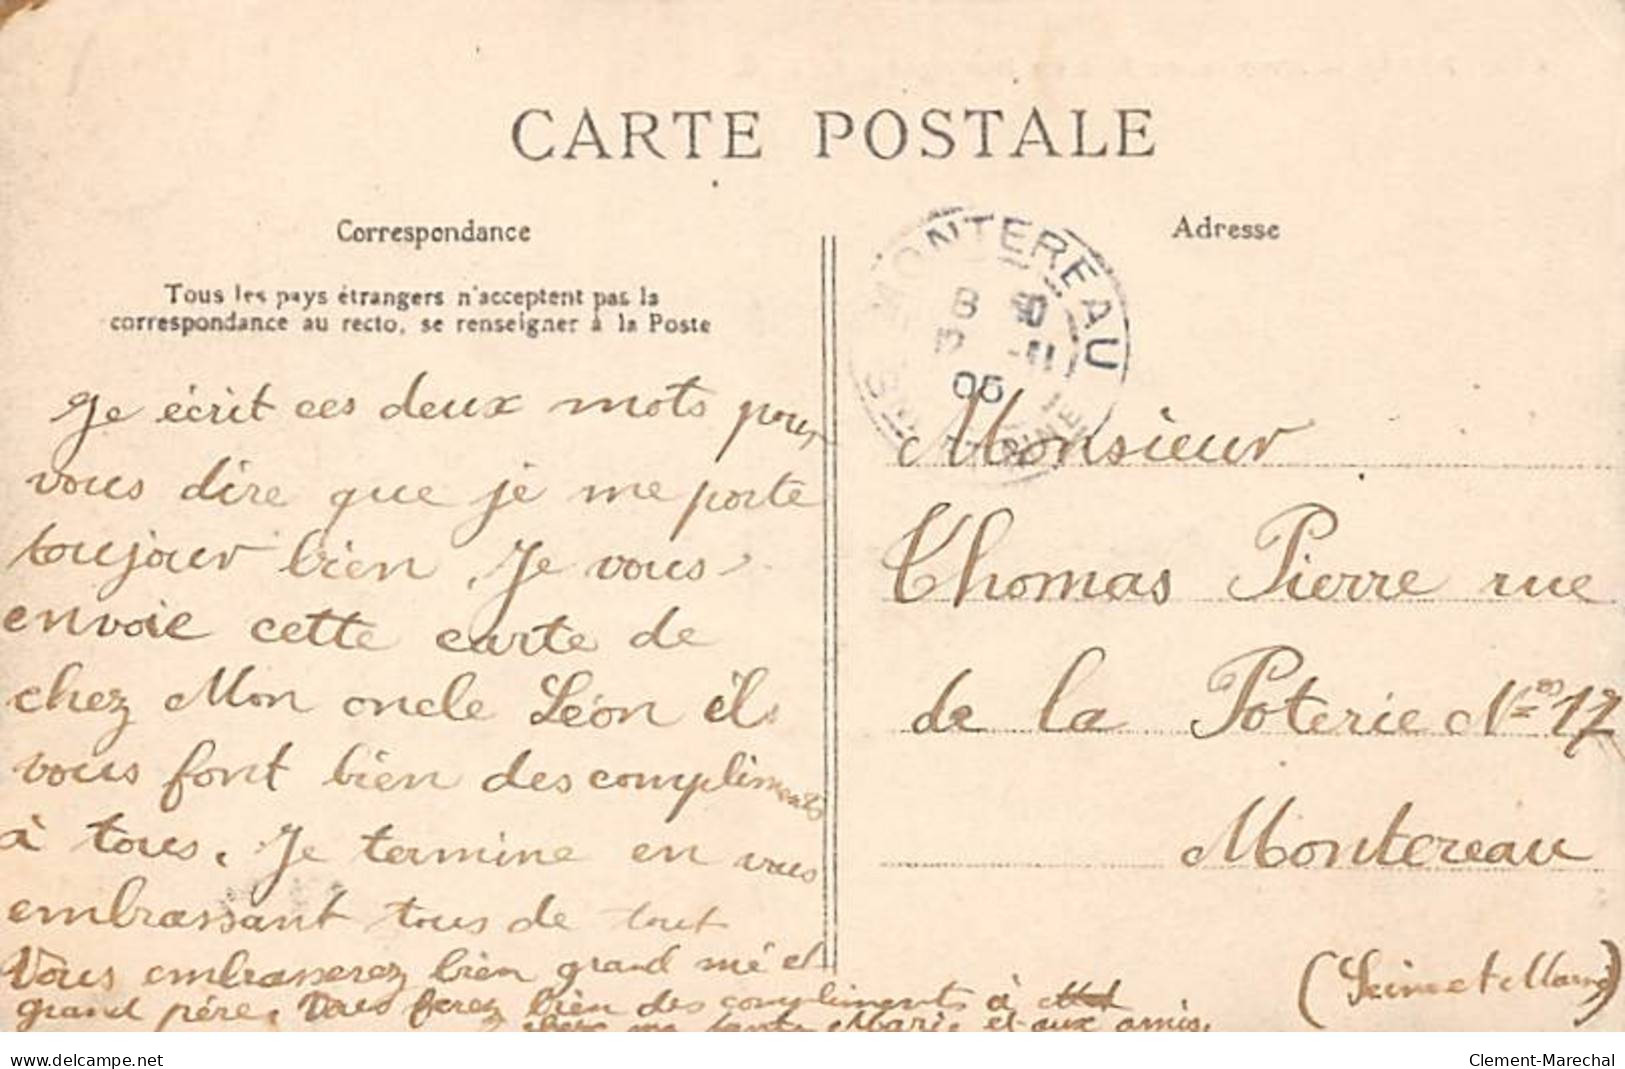 CARTE POSTALE
Correspondance
Tous les pays étrangers n'acceptent pas la
correspondance au recto, se renseigner à la Poste
Je écrit ces deux mots pour
vous dire que je me porte
toujour bien. Je vous
envoie cette carte de
chez Mon oncle Léon ils
vous font bien des compliments
à tous. Je termine en vous
embrassant tous de tout
Vous embrasserez bien grand mé et
grand pére. Vous ferez bien des compliments à
chez ma tante Marie et aux amis.
Adresse
MONTEREAU
05
Monsieur
Thomas Pierre rue
de la Poterie Nos 17
Montereau
(Seine et Marne)
www.delcampe.net
Clement-Marechal